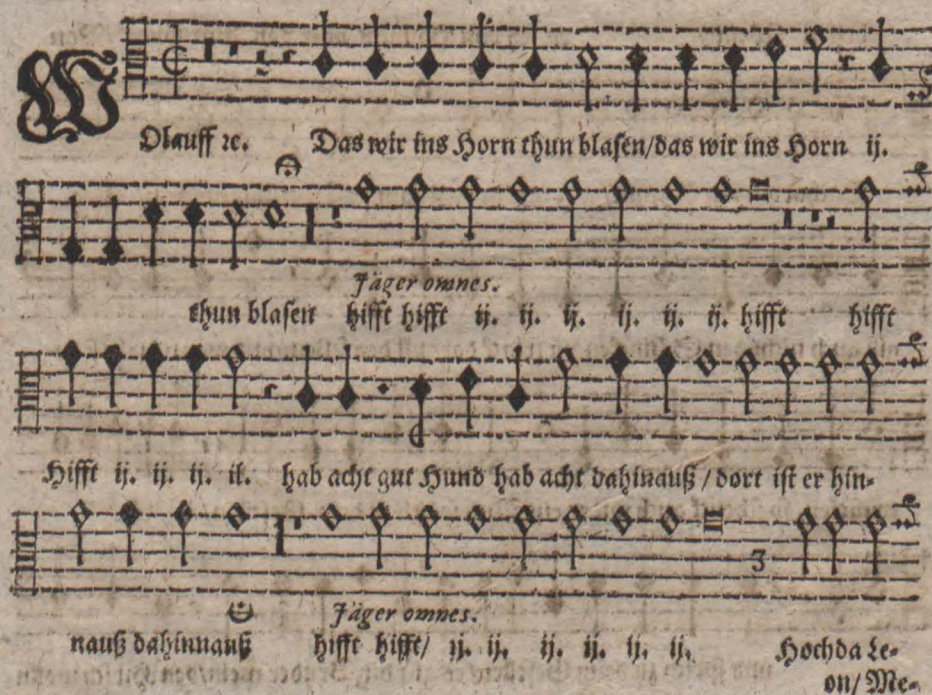 WOlauff ꝛc. Das wir ins Horn thun blasen/das wir ins Horn ij.
Jäger omnes.
thun blasen hifft hifft ij. ij. ij. ij. ij. ij. hifft hifft
Hifft ij. ij. ij. il. hab acht gut Hund hab acht dahinauß / dort ist er hin-
3
Jäger omnes.
nauß dahinnauß hifft hifft/ ij. ij. ij. ij. ij. ij. Hochda Le-
on/ Me-